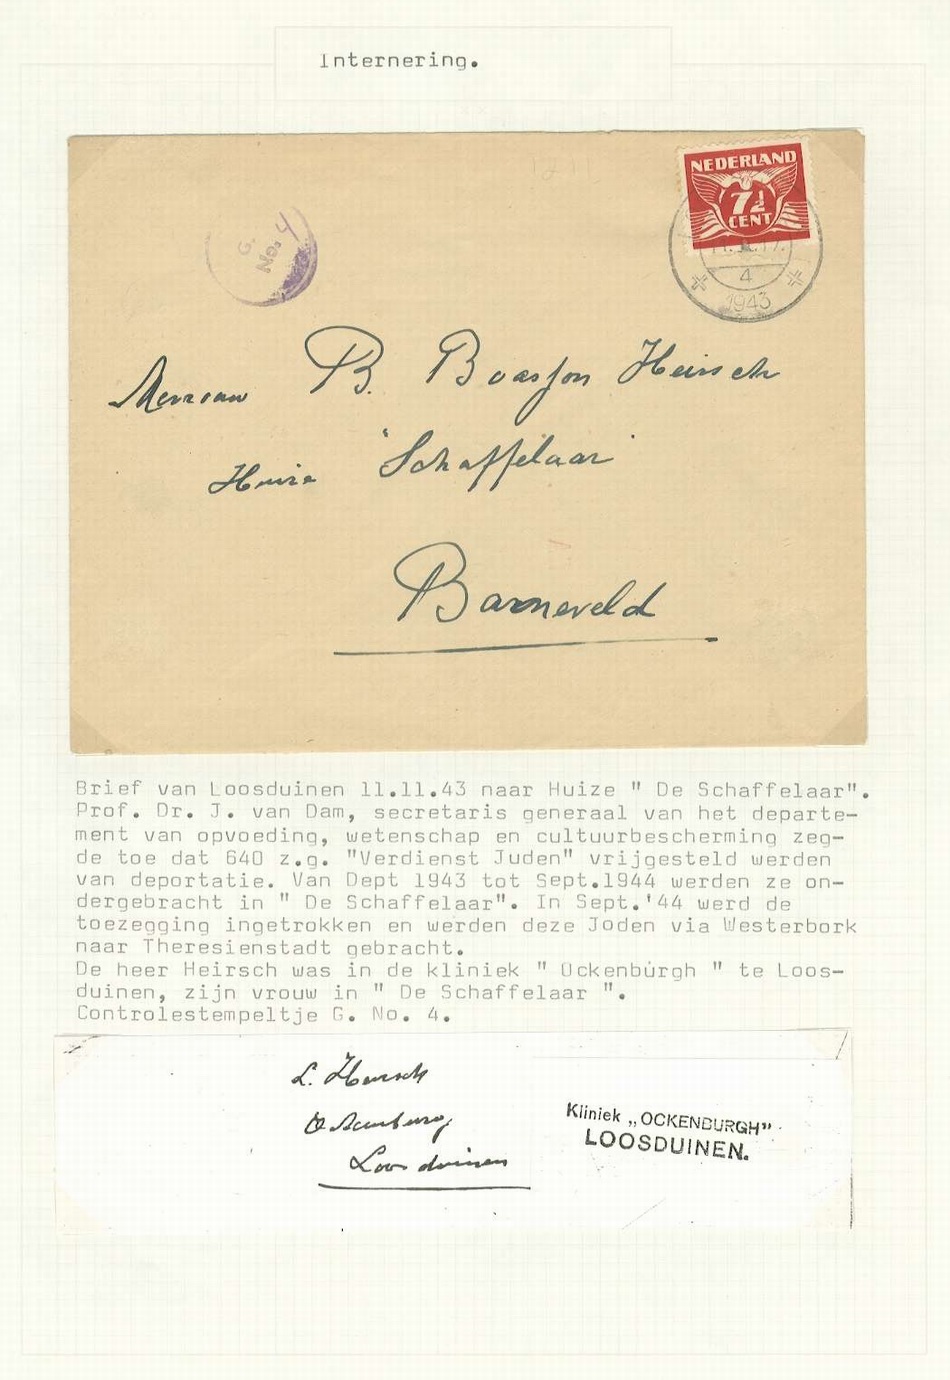 Internering.
NEDERLAND
7½
CENT
G.
No. 4
4
1943
Mevrouw B. Boasson Heirsch
Huize "Schaffelaar"
Barneveld
Brief van Loosduinen 11.11.43 naar Huize " De Schaffelaar".
Prof. Dr. J. van Dam, secretaris generaal van het departe-
ment van opvoeding, wetenschap en cultuurbescherming zeg-
de toe dat 640 z.g. "Verdienst Juden" vrijgesteld werden
van deportatie. Van Dept 1943 tot Sept.1944 werden ze on-
dergebracht in " De Schaffelaar". In Sept.'44 werd de
toezegging ingetrokken en werden deze Joden via Westerbork
naar Theresienstadt gebracht.
De heer Heirsch was in de kliniek " Ockenburgh " te Loos-
duinen, zijn vrouw in " De Schaffelaar ".
Controlestempeltje G. No. 4.
L. Heirsch
Ockenburg
Loosduinen
Kliniek „OCKENBURGH"
LOOSDUINEN.